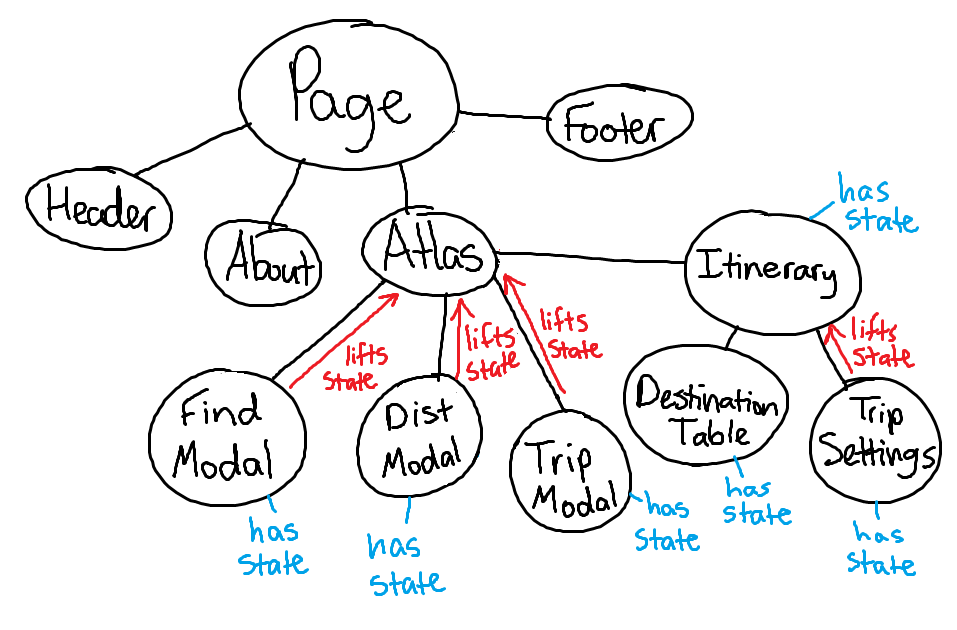 Page
Footer
Header
About
Atlas
Itinerary
has
state
lifts
state
lifts
state
lifts
state
lifts
state
Find
Modal
Dist
Modal
Trip
Modal
Destination
Table
Trip
Settings
has
state
has
state
has
state
has
state
has
state